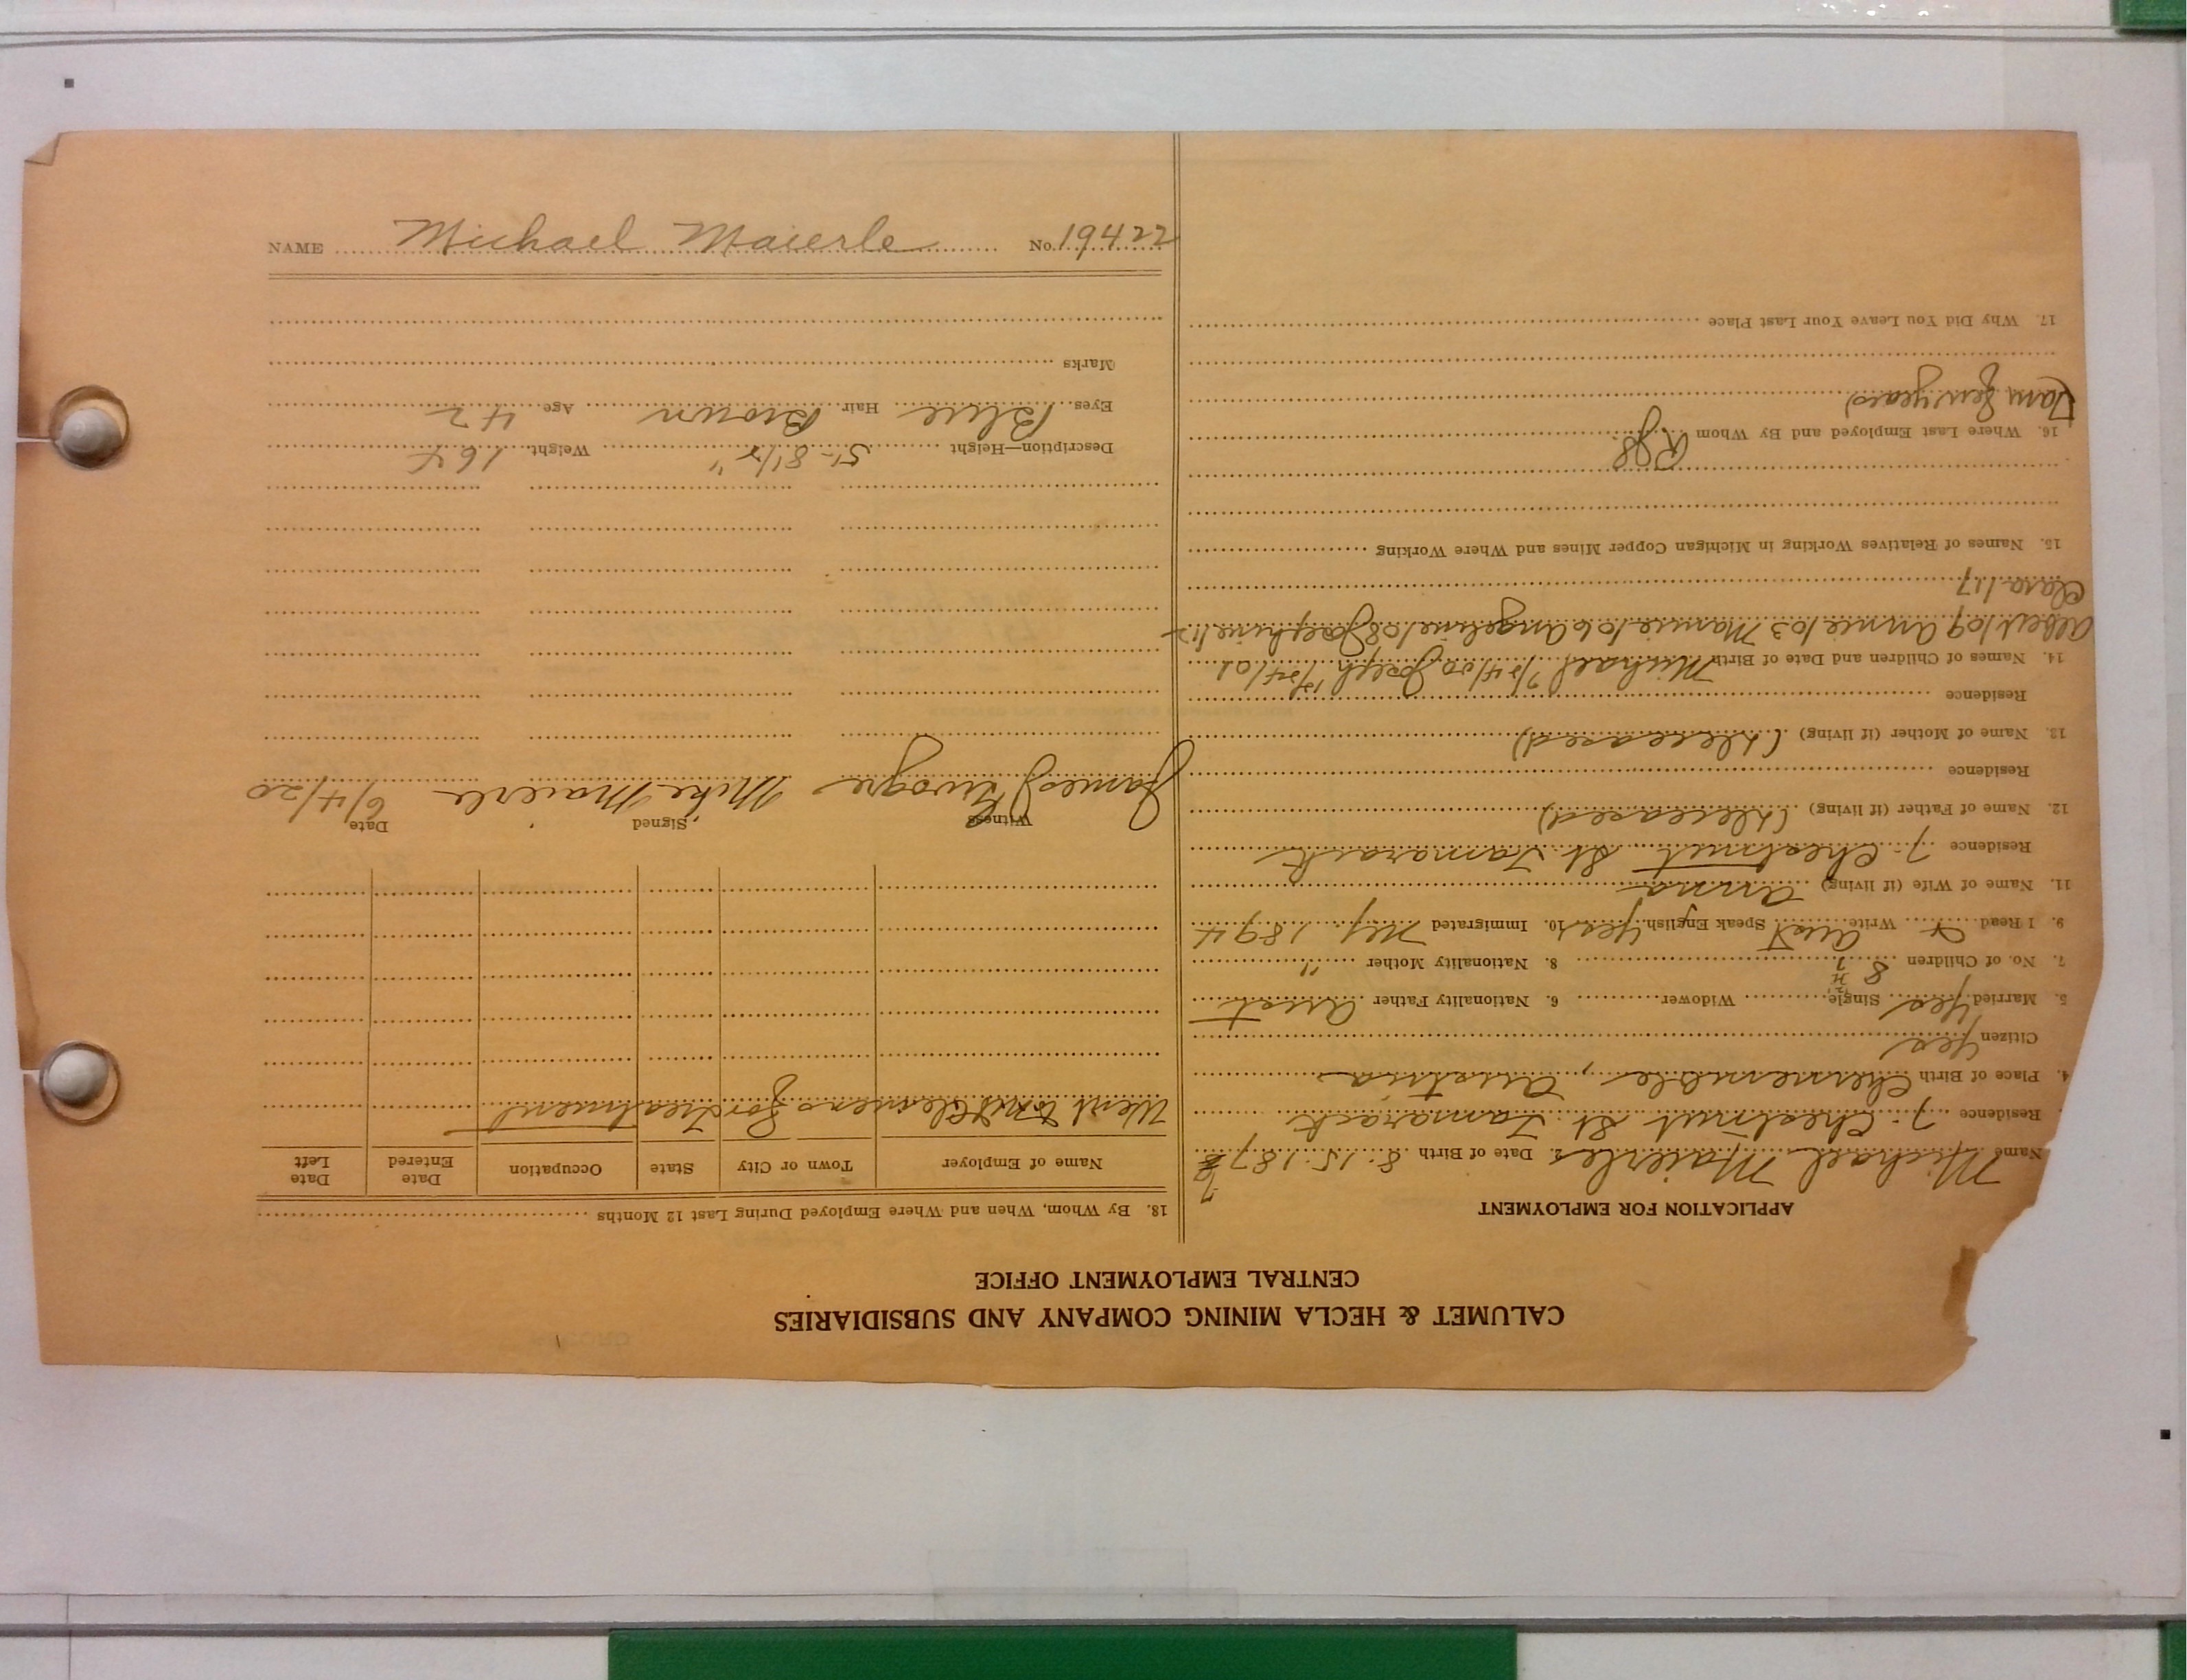 CALUMET & HECLA MINING COMPANY AND SUBSIDIARIES
CENTRAL EMPLOYMENT OFFICE
APPLICATION FOR EMPLOYMENT
Name Michael Maierle 2. Date of Birth 8-15-187
Residence 7- Chestnut St. Tamarack
4. Place of Birth , Austria
Citizen Yes
5. Married Yes Single Widower 6. Nationality Father Aust
7. No. of Children 8 8. Nationality Mother "
9. I Read & Write Aust Speak English Yes 10. Immigrated 1894
11. Name of Wife (if living) Anna
Residence 7- Chestnut St. Tamarack
12. Name of Father (if living) (deceased)
Residence
13. Name of Mother (if living) (deceased)
Residence
14. Names of Children and Date of Birth Michael 9/24/00 Joseph 12/24/01
Albert/09 Annie/03 Mamie/06 Angeline/08 Josephine/12
Clara/17
15. Names of Relatives Working in Michigan Copper Mines and Where Working
16. Where Last Employed and By Whom
(Tam few years)
17. Why Did You Leave Your Last Place
18. By Whom, When and Where Employed During Last 12 Months
Name of Employer Town or City State Occupation Date Entered Date Left
Went to Mt Clemens for treatment
Witness Signed Date
James Mike Maierle 6/4/20
Description—Height 5'-8 1/2" Weight 164
Eyes Blue Hair Brown Age 42
Marks
NAME Michael Maierle No. 19422